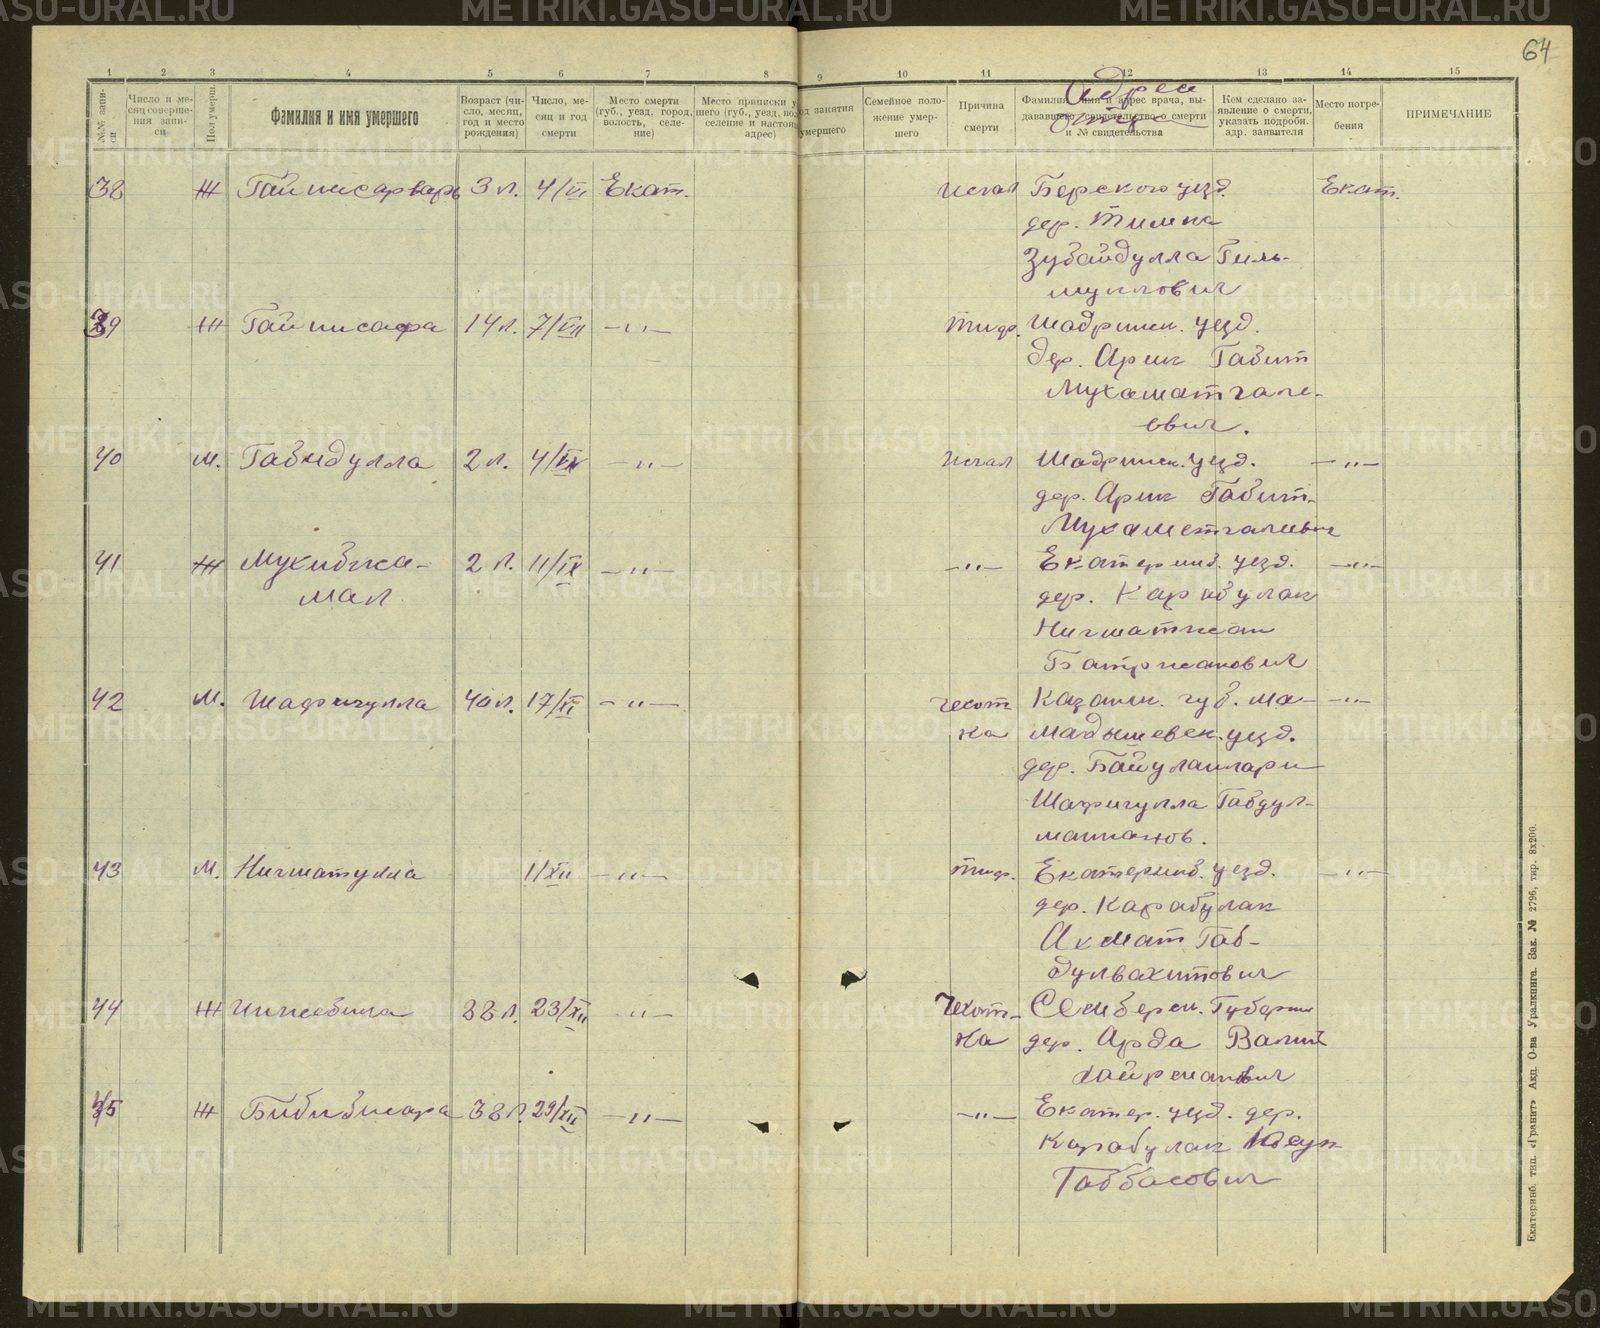 64
1 2 3 4 5 6 7 8 9 10 11 12 13 14 15
№№ записи
Число и месяц совершения записи
Пол умерш.
Фамилия и имя умершего
Возраст (число, месяц, год и место рождения)
Число, месяц и год смерти
Место смерти (губ., уезд, город, волость, селение)
Место приписки у
шего (губ., уезд, во
селение и настоя
адрес)
од занятия
умершего
Семейное положение умершего
Причина смерти
Фамилия, имя и адрес врача, выдававшего свидетельство о смерти и № свидетельства
Адрес
отца
Кем сделано заявление о смерти, указать подробн. адр. заявителя
Место погребения
ПРИМЕЧАНИЕ
38 Ж Гайнисарварь 3 л. 4/VI Екат. Бирского уезд. Екат.
дер.
Зубайдулла Гиль-
муллович
39 Ж Гайнисафа 14 л. 7/VII —"— Тиф. Шадринск. уезд.
дер. Арик Габит
Мухаматгале-
евич.
40 М. Габидулла 2 л. —"— Шадринск. уезд. —"—
дер. Арик Габит
Мухаметгалиевич
41 Ж 2 л. 11/IX —"— —"— Екатеринб. уезд. —"—
мал дер. Карабулак
Нигматжан
42 М. Шафигулла 40 л. 17/XI —"— чехот Казанск. губ. Ма- —"—
ка мадышевск. уезд.
дер.
Шафигулла Габдул-
маннанов.
43 М. Нигматулла 1/XII —"— Тиф. Екатеринб. уезд. —"—
дер. Карабулак
Ахмат Габ-
дулвахитович
44 Ж 38 л. 23/XII —"— Чехот- Губерни
ка дер. Арда
45 Ж 38 л. 29/XII —"— —"— Екатер. уезд. дер.
Карабулак Юсуп
Габбасович
Екатеринб. тип. «Гранит» Акц. О-ва Уралкнига. Зак. № 2796, тир. 8х200.
METRIKI.GASO-URAL.RU